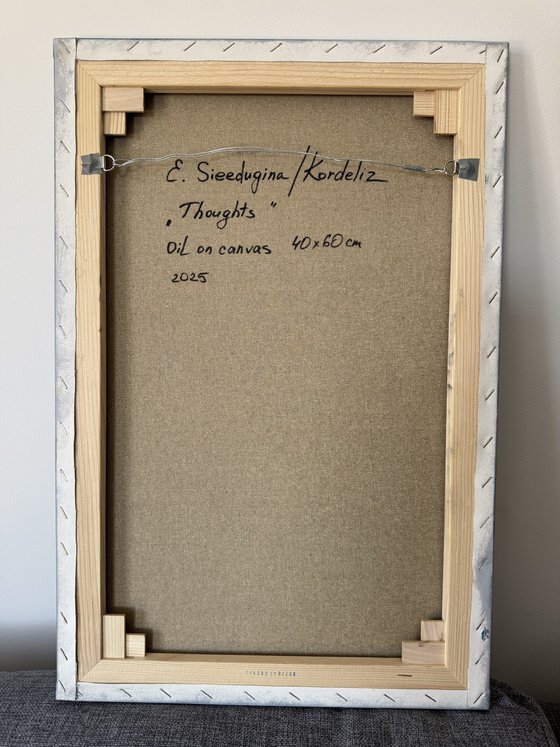 E. Sieedugina/Kordeliz
„Thoughts"
Oil on canvas 40x60 cm
2025